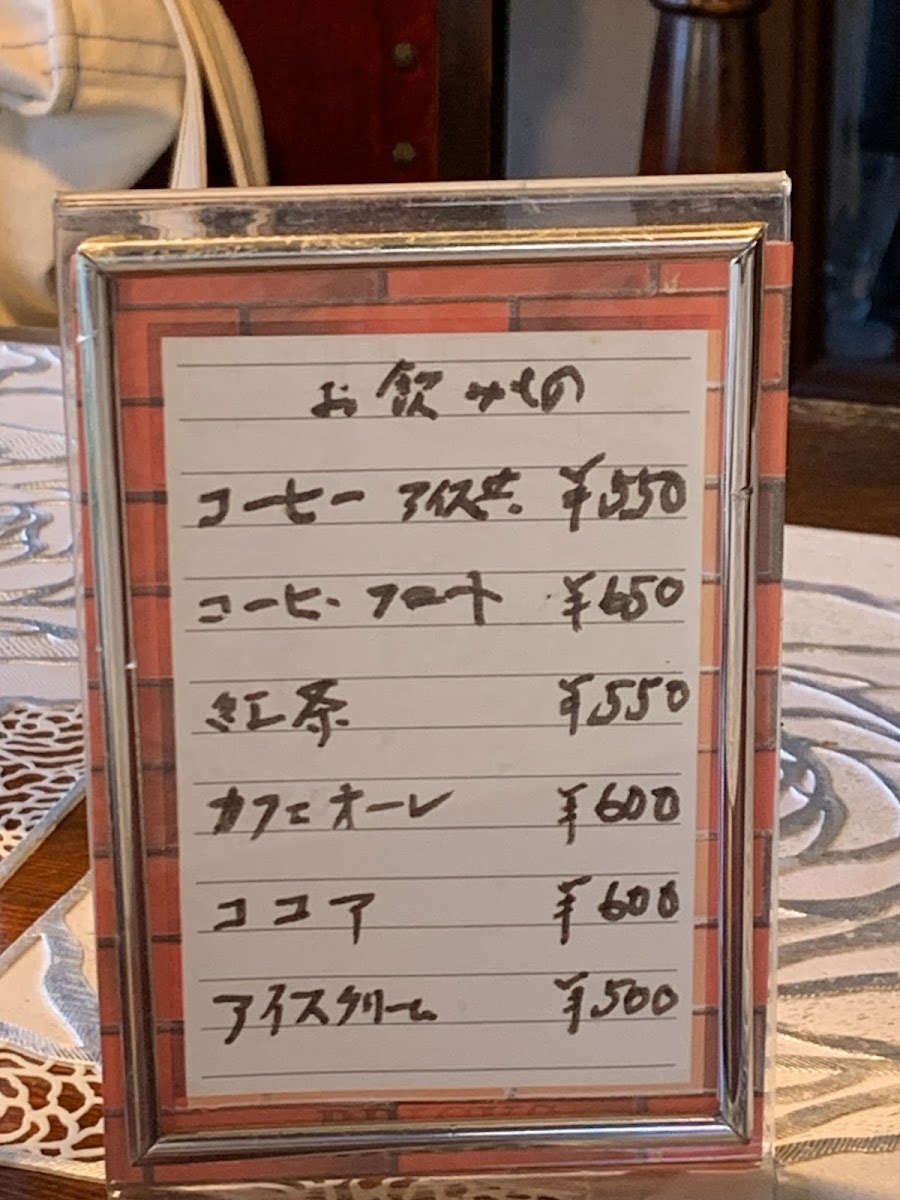 お飲みもの
コーヒー アイス共 ¥550
コーヒーフロート ¥650
紅茶 ¥550
カフェオーレ ¥600
ココア ¥600
アイスクリーム ¥500